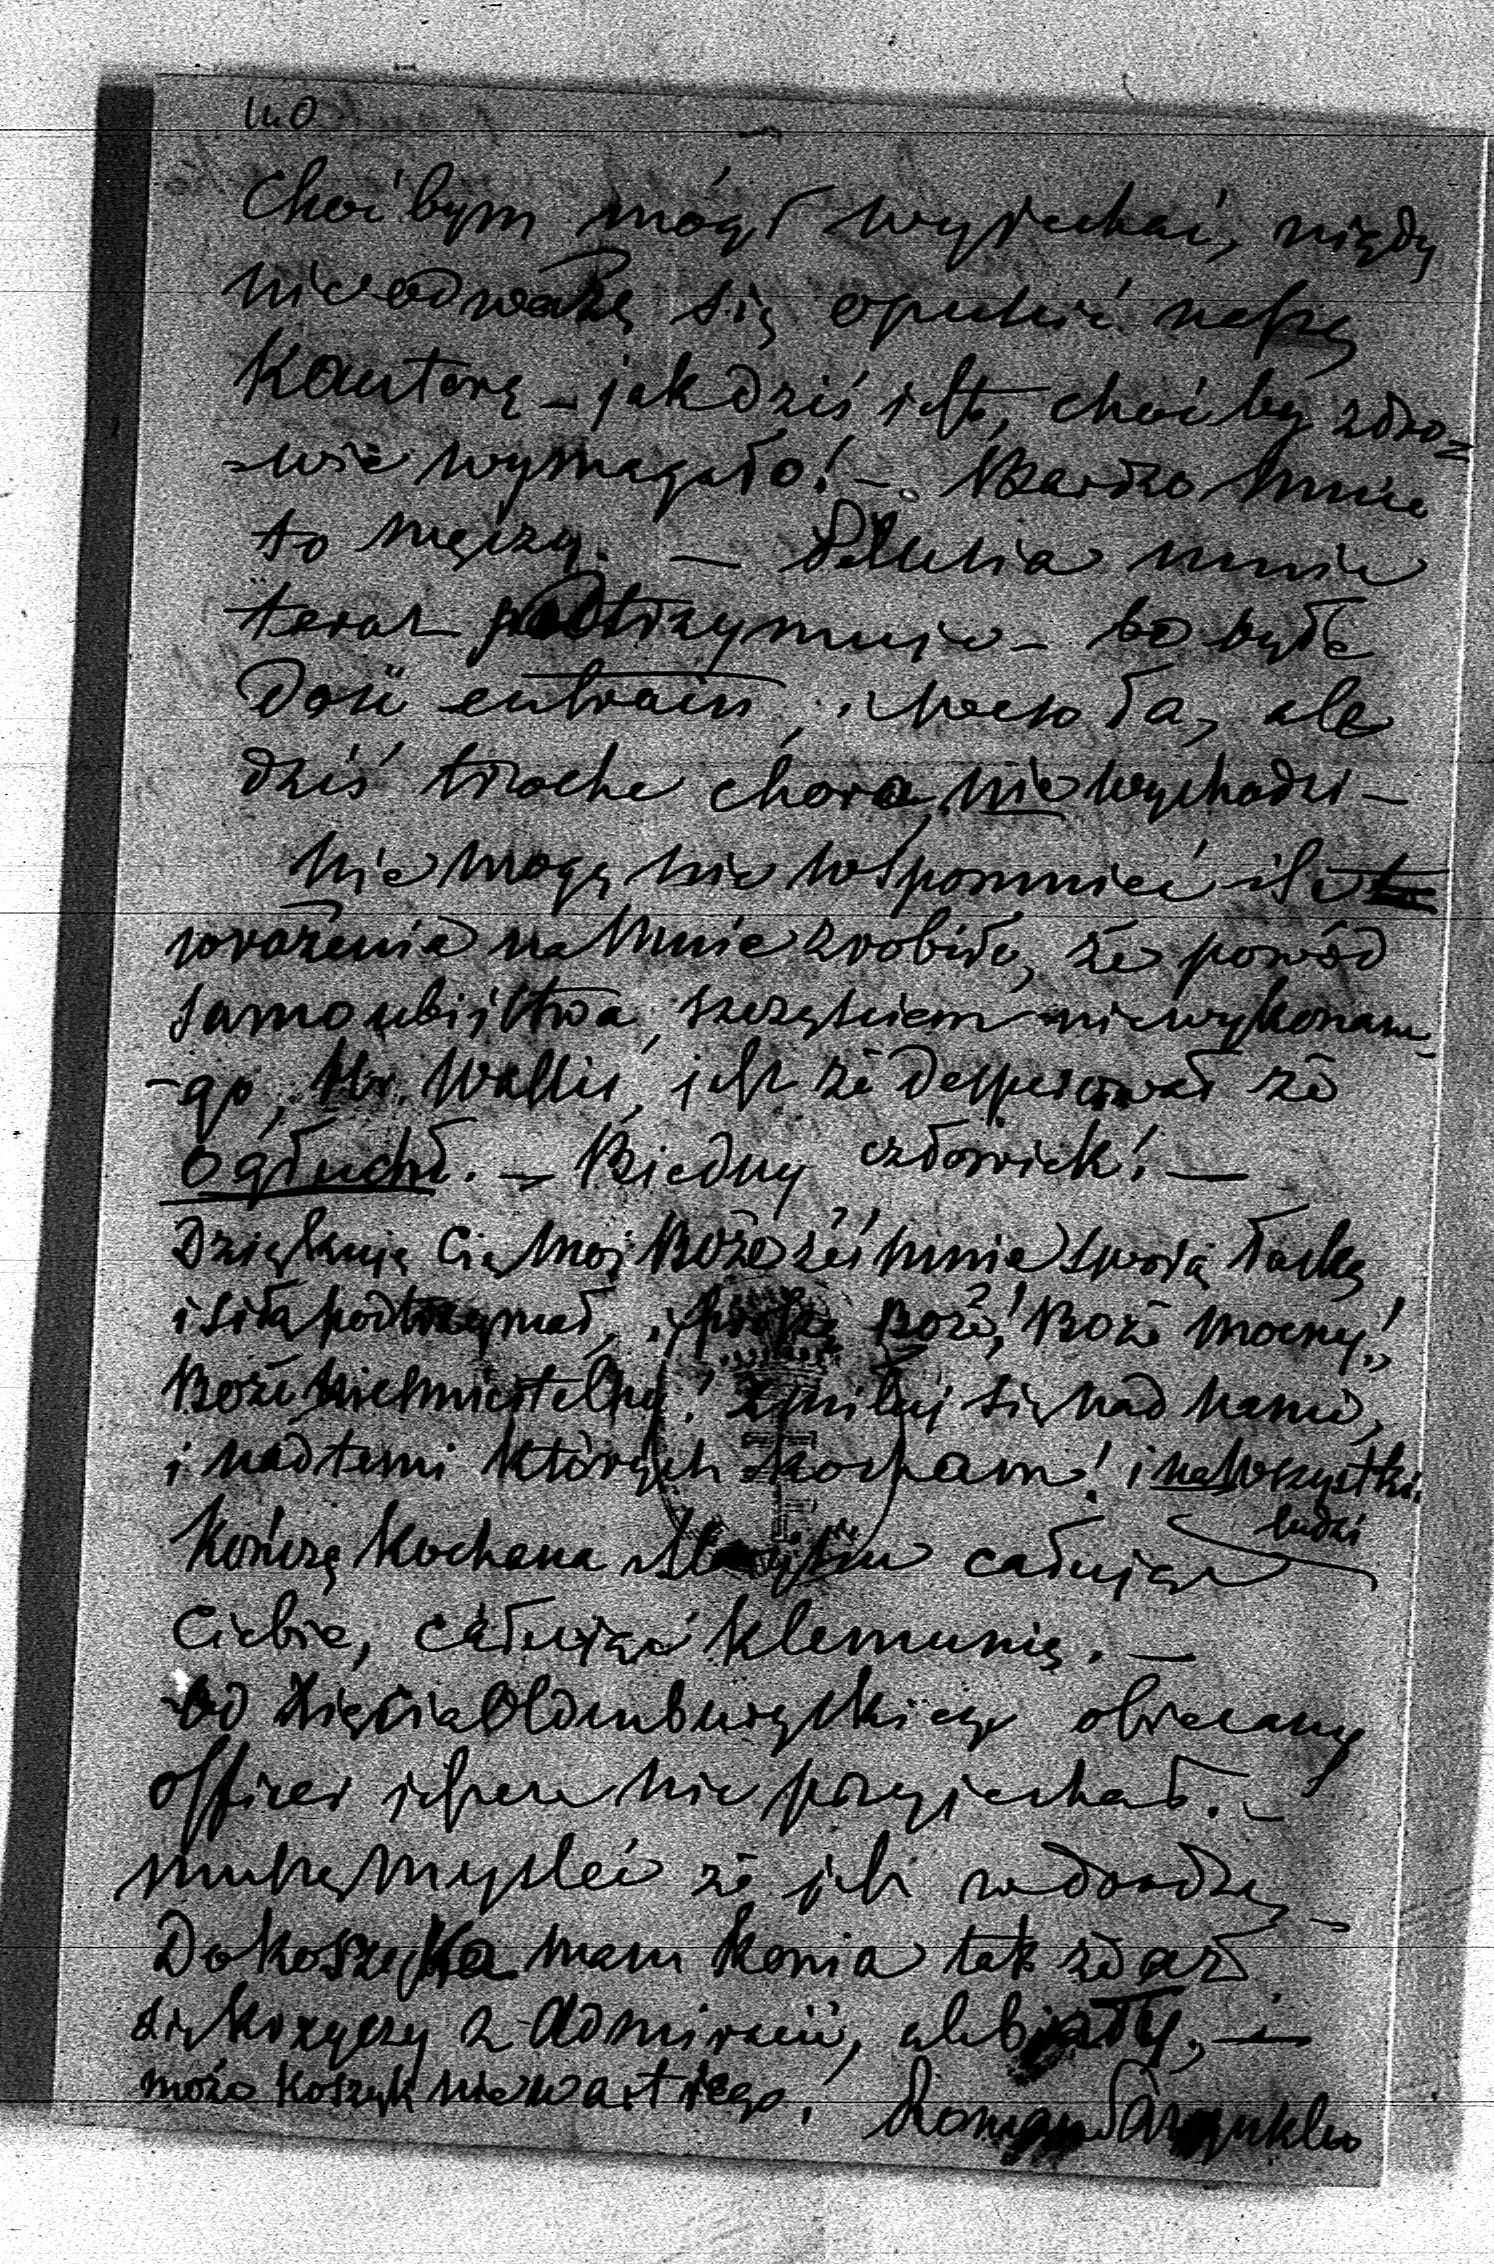 Choćbym mógł wyjechać, nigdy
nie odważę się opuścić naszę
Kantorę – jak dziś jest, choćby zdro=
=wie wymagało! – Bardzo mnie
to męczy. –  mnie
teraz podtrzymuje – bo była
dość entrain, i wesoła, ale
dziś troche chora, nie wychodzi –
Nie mogę nie wspomnieć ile
wrażenia na mnie zrobiło, że powód
samoubijstwa, szczęściem niewykonane-
-go, Hr. Wallis, jest że desperował że
ogłuchł. – Biedny człowiek! –
Dziękuję Cię moj Boże żeś mnie swoją łaską
i siłą podtrzymał, i proszę Boże! Boże mocny!
Boże nieśmiertelny! Zmiłuj się nad nami,
i nad temi których kocham! i na wszystkie
ludzi
Kończę kochana całując
Ciebie, całując Klemunię. –
Od Xięcia Oldenburgskiego obiecany
officer jeszcze nie przyjechał. –
muszę mysleć że jest w drodze –
Do koszyka mam konia tak że aż
się krzyczy z admiracii, ale biały, –
może koszyk nie wart tego. Roman Sanguszko